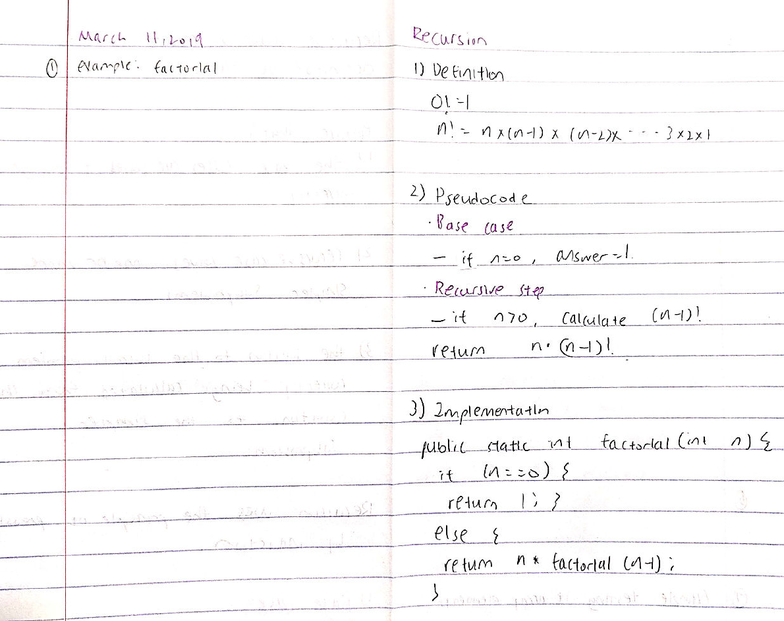 March 11, 2019
① example: factorial
Recursion
1) Definition
0! = 1
n! = n x (n-1) x (n-2) x ---- 3 x 2 x 1
2) Pseudocode
· Base case
- if n=0, answer=1.
· Recursive step
- if n>0, calculate (n-1)!
return n · (n-1)!
3) Implementation
public static int factorial (int n) {
if (n==0) {
return 1; }
else {
return n * factorial (n-1);
}